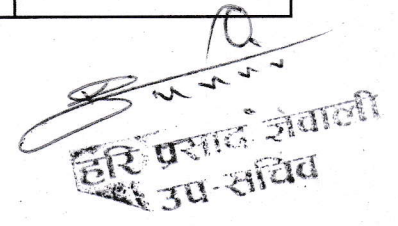 हरि प्रसाद शेवाली
उप-सचिव